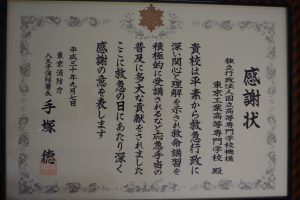 感謝状
独立行政法人国立高等専門学校機構
東京工業高等専門学校 殿
貴校は平素から救急行政に
深い関心と理解を示され救命講習を
積極的に受講されるなど応急手当の
普及に多大な貢献をされました
ここに救急の日にあたり深く
感謝の意を表します
平成二十年九月七日
東京消防庁
八王子消防署長
手塚 徳